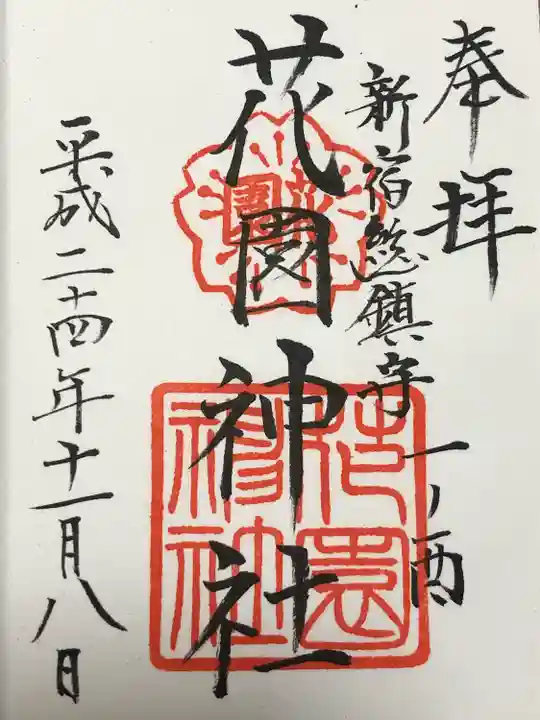 奉拝
新宿総鎮守
一ノ酉
花園神社
平成二十四年十一月八日
花園
花園神社